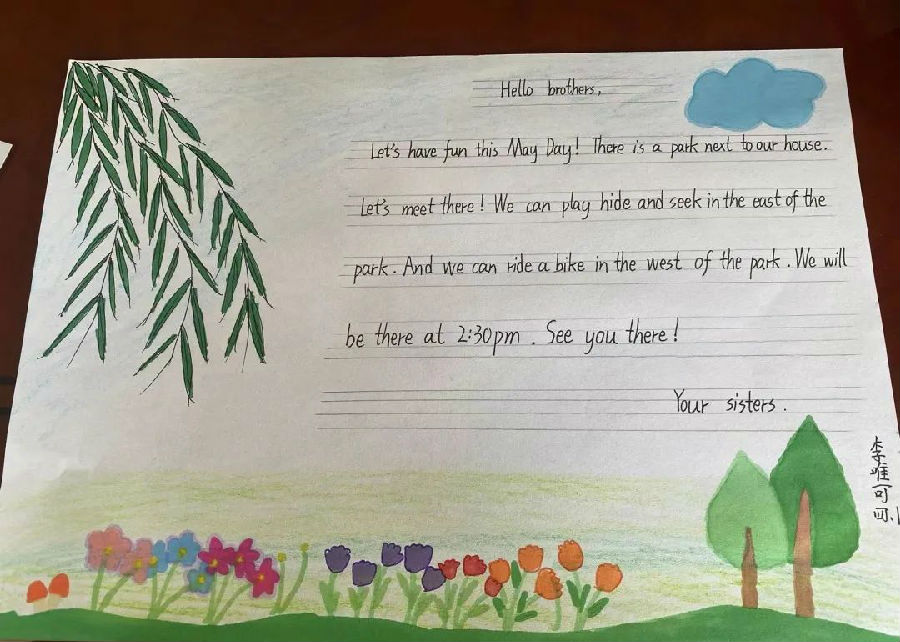 Hello brothers,
Let's have fun this May Day! There is a park next to our house.
Let's meet there! We can play hide and seek in the east of the
park. And we can ride a bike in the west of the park. We will
be there at 2:30pm. See you there!
Your sisters.
李唯可